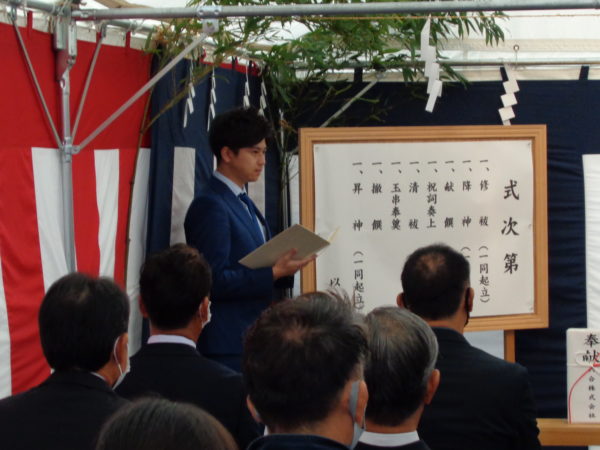 式次第
一、修祓（一同起立）
一、降神（一
一、献饌
一、祝詞奏上
一、清祓
一、玉串奉奠
一、撤饌
一、昇神（一同起立）
以
奉献
合株式会社